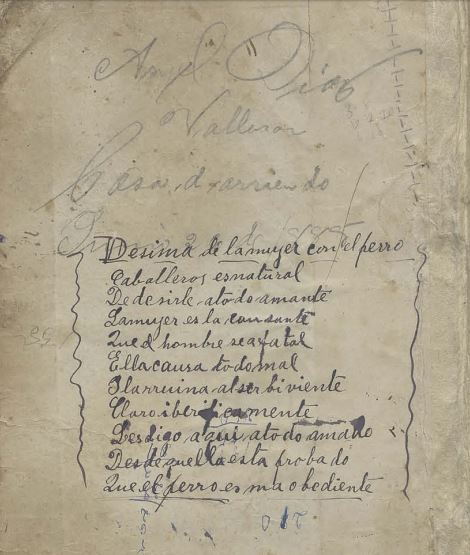 Angel Diaz
Casa, d. arriendo
Desima de la mujer con el perro
Caballeros esnatural
De desirle atodo amante
Lamujer es la causante
Que el hombre sea fatal
Ella causa todo mal
I larruina al ser bi viente
Claro i berificamente
Les digo aqui, ato do amado
Desde quella esta proba do
Que el perro es ma obediente